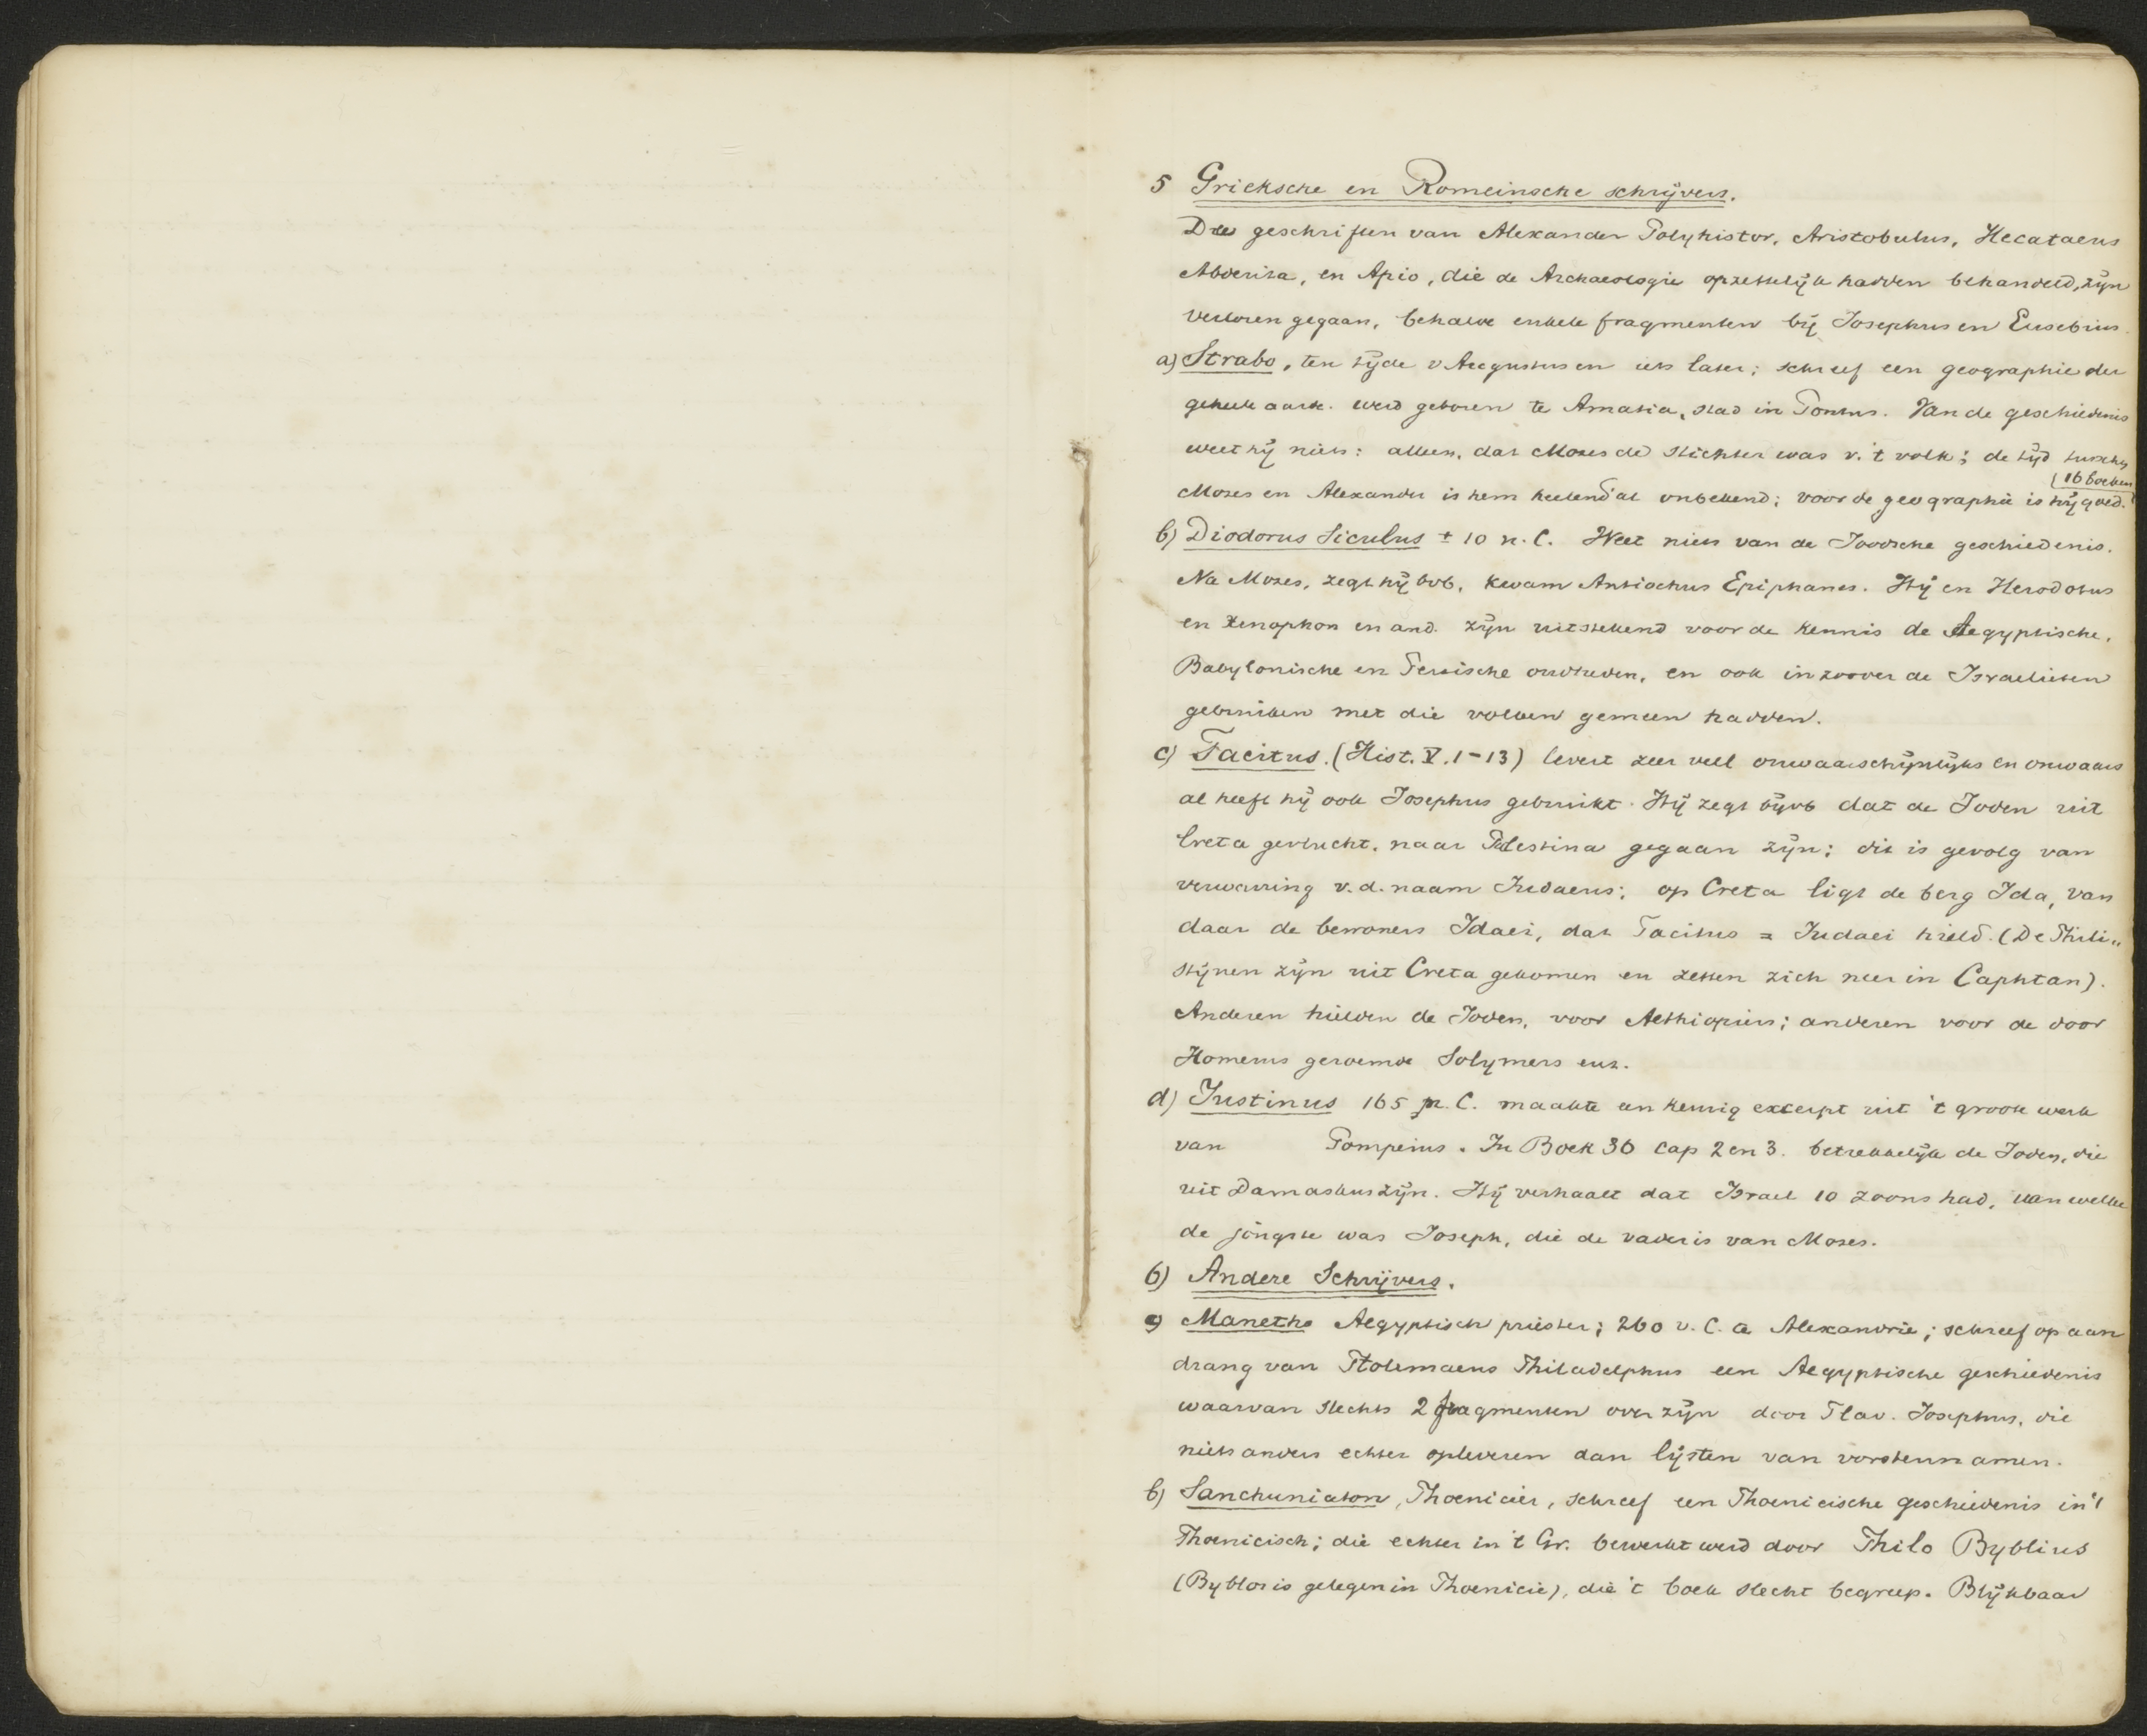 5 Grieksche en Romeinsche schrijvers.
De geschriften van Alexander Polyhistor, Aristobulus, Hecataeus
Abderita, en Apio, die de Archaeologie opzettelijk hadden behandeld, zijn
verloren gegaan, behalve enkele fragmenten bij Josephus en Eusebius.
a) Strabo, ten tijde v Augustus en iets later; schreef een geographie der
geheele aarde. werd geboren te Amasia, stad in Pontus. Van de geschiedenis
weet hij niets: alleen, dat Mozes de stichter was v. 't volk; de tijd tusschen
(16 boeken
Mozes en Alexander is hem heelendal onbekend; voor de geographie is hij goed.
b) Diodorus Siculus ± 10 n. C. Weet niets van de Joodsche geschiedenis.
Na Mozes, zegt hij bvb, kwam Antiochus Epiphanes. Hij en Herodotus
en Xenophon en and. zijn uitstekend voor de kennis de Aegyptische,
Babylonische en Persische oudheden, en ook in zoover de Israelieten
gebruiken met die volken gemeen hadden.
c) Tacitus. (Hist. V. 1-13) levert zeer veel onwaarschijnlijks en onwaars
al heeft hij ook Josephus gebruikt. Hij zegt bijvb dat de Joden uit
Creta gevlucht, naar Palestina gegaan zijn; dit is gevolg van
verwarring v. d. naam Judaeus; op Creta ligt de berg Ida, van
daar de bewoners Idaei, dat Tacitus = Judaei hield. (De Phili„
stijnen zijn uit Creta gekomen en zetten zich neer in Caphtan).
Anderen hielden de Joden, voor Aethiopiers; anderen voor de door
Homerus geroemde Solymers enz.
d) Justinus 165 p. C. maakte een keurig excerpt uit 't groote werk
van Pompeius. In Boek 36 cap 2 en 3. betrekkelijk de Joden, die
uit Damaskus zijn. Hij verhaalt dat Israel 10 zoons had, van welke
de jongste was Joseph, die de vader is van Mozes.
6) Andere Schrijvers.
a) Manetho Aegyptisch priester; 260 v. C. a Alexandrie; schreef op aan
drang van Ptolemaeus Philadelphus een Aegyptische geschiedenis
waarvan slechts 2 fragmenten over zijn door Flav. Josephus, die
niets anders echter opleveren dan lijsten van vorstennamen.
b) Sanchuniaton, Phoenicier, schreef een Phoenicische geschiedenis in 't
Phoenicisch; die echter in 't Gr. bewerkt werd door Philo Byblius
(Byblos is gelegen in Phoenicie), die 't boek slecht begreep. Blijkbaar